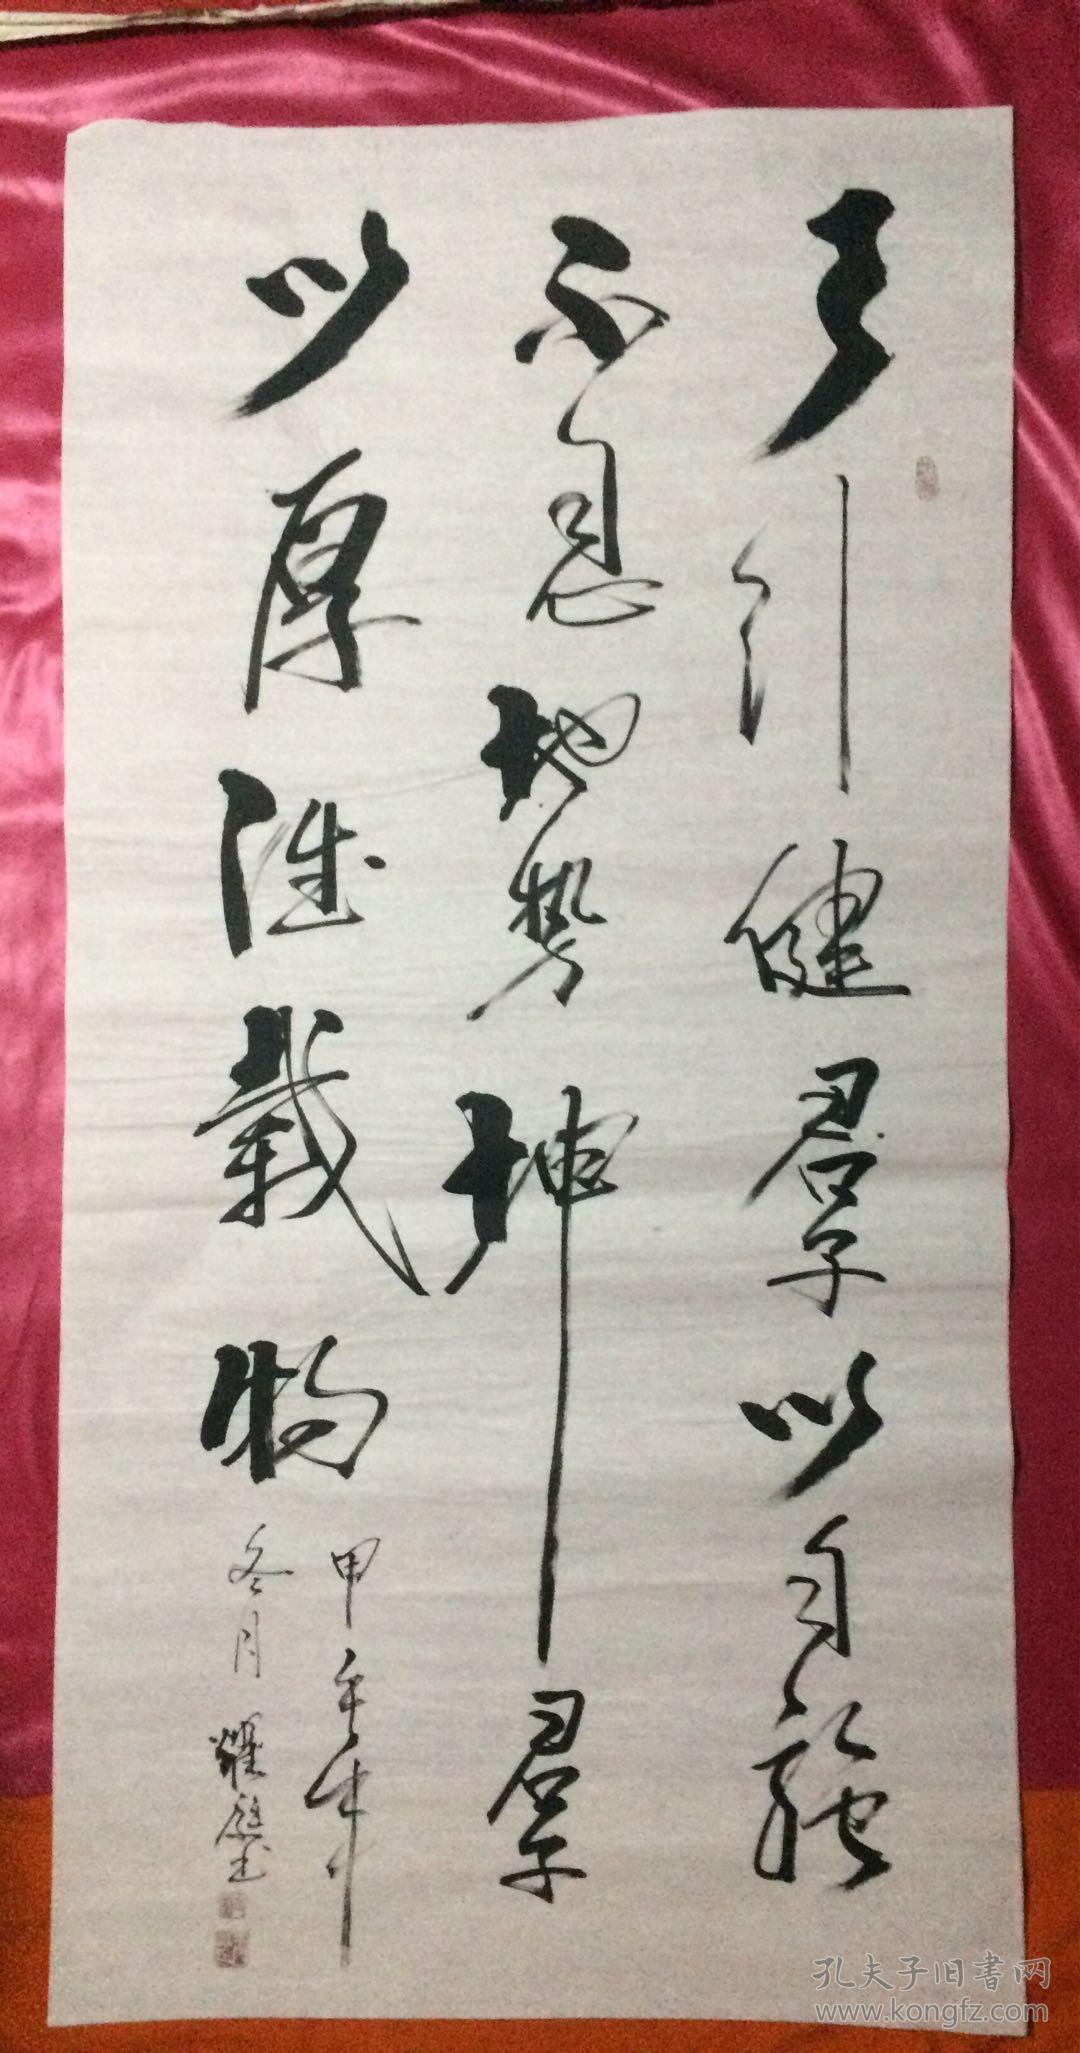 天行健君子以自强
不息地势坤君子
以厚德载物
甲午年
冬月 耀庭书
孔夫子旧書网
www.kongfz.com